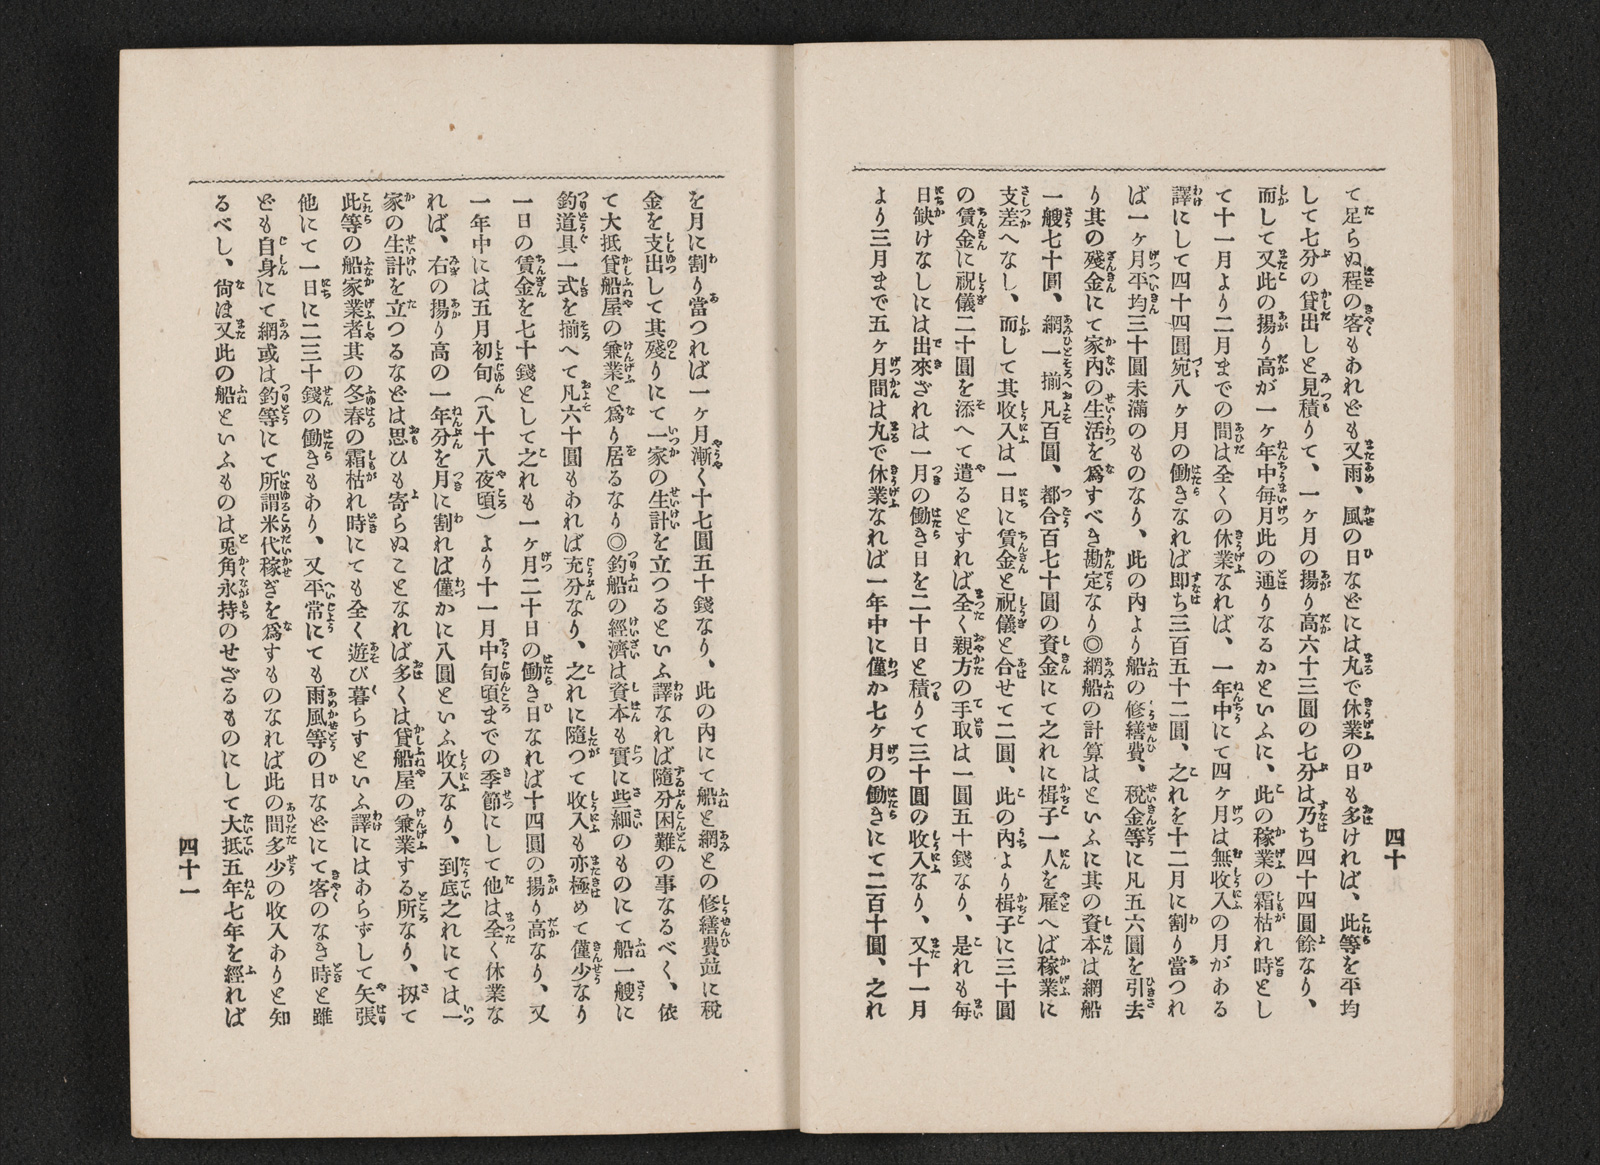 四十
て足らぬ程の客もあれども又雨、風の日などには丸で休業の日も多ければ、此等を平均
して七分の貸出しと見積りて、一ヶ月の揚り高六十三圓の七分は乃ち四十四圓餘なり、
而して又此の揚り高が一ヶ年中毎月此の通りなるかといふに、此の稼業の霜枯れ時とし
て十一月より二月までの間は全くの休業なれば、一年中にて四ヶ月は無收入の月がある
譯にして四十四圓宛八ヶ月の働きなれば即ち三百五十二圓、之れを十二月に割り當つれ
ば一ヶ月平均三十圓未滿のものなり、此の内より船の修繕費、税金等に凡五六圓を引去
り其の殘金にて家内の生活を爲すべき勘定なり◎網船の計算はといふに其の資本は網船
一艘七十圓、網一揃凡百圓、都合百七十圓の資金にて之れに楫子一人を雇へば稼業に
支差へなし、而して其收入は一日に賃金と祝儀と合せて二圓、此の内より楫子に三十圓
の賃金に祝儀二十圓を添へて遣るとすれば全く親方の手取は一圓五十錢なり、是れも毎
日缺けなしには出來ざれは一月の働き日を二十日と積りて三十圓の收入なり、又十一月
より三月まで五ヶ月間は丸で休業なれば一年中に僅か七ヶ月の働きにて二百十圓、之れ
を月に割り當つれば一ヶ月漸く十七圓五十錢なり、此の内にて船と網との修繕費竝に税
金を支出して其殘りにて一家の生計を立つるといふ譯なれば隨分困難の事なるべく、依
て大抵貸船屋の兼業と爲り居るなり◎釣船の經濟は資本も實に些細のものにて船一艘に
釣道具一式を揃へて凡六十圓もあれば充分なり、之れに隨つて收入も亦極めて僅少なり
一日の賃金を七十錢として之れも一ヶ月二十日の働き日なれば十四圓の揚り高なり、又
一年中には五月初旬（八十八夜頃）より十一月中旬頃までの季節にして他は全く休業な
れば、右の揚り高の一年分を月に割れば僅かに八圓といふ收入なり、到底之れにては一
家の生計を立つるなどは思ひも寄らぬことなれば多くは貸船屋の兼業する所なり、扨て
此等の船家業者其の冬春の霜枯れ時にても全く遊び暮らすといふ譯にはあらずして矢張
他にて一日に二三十錢の働きもあり、又平常にても雨風等の日などにて客のなき時と雖
ども自身にて網或は釣等にて所謂米代稼ぎを爲すものなれば此の間多少の收入ありと知
るべし、尙ほ又此の船といふものは兎角永持のせざるものにして大抵五年七年を經れば
四十一